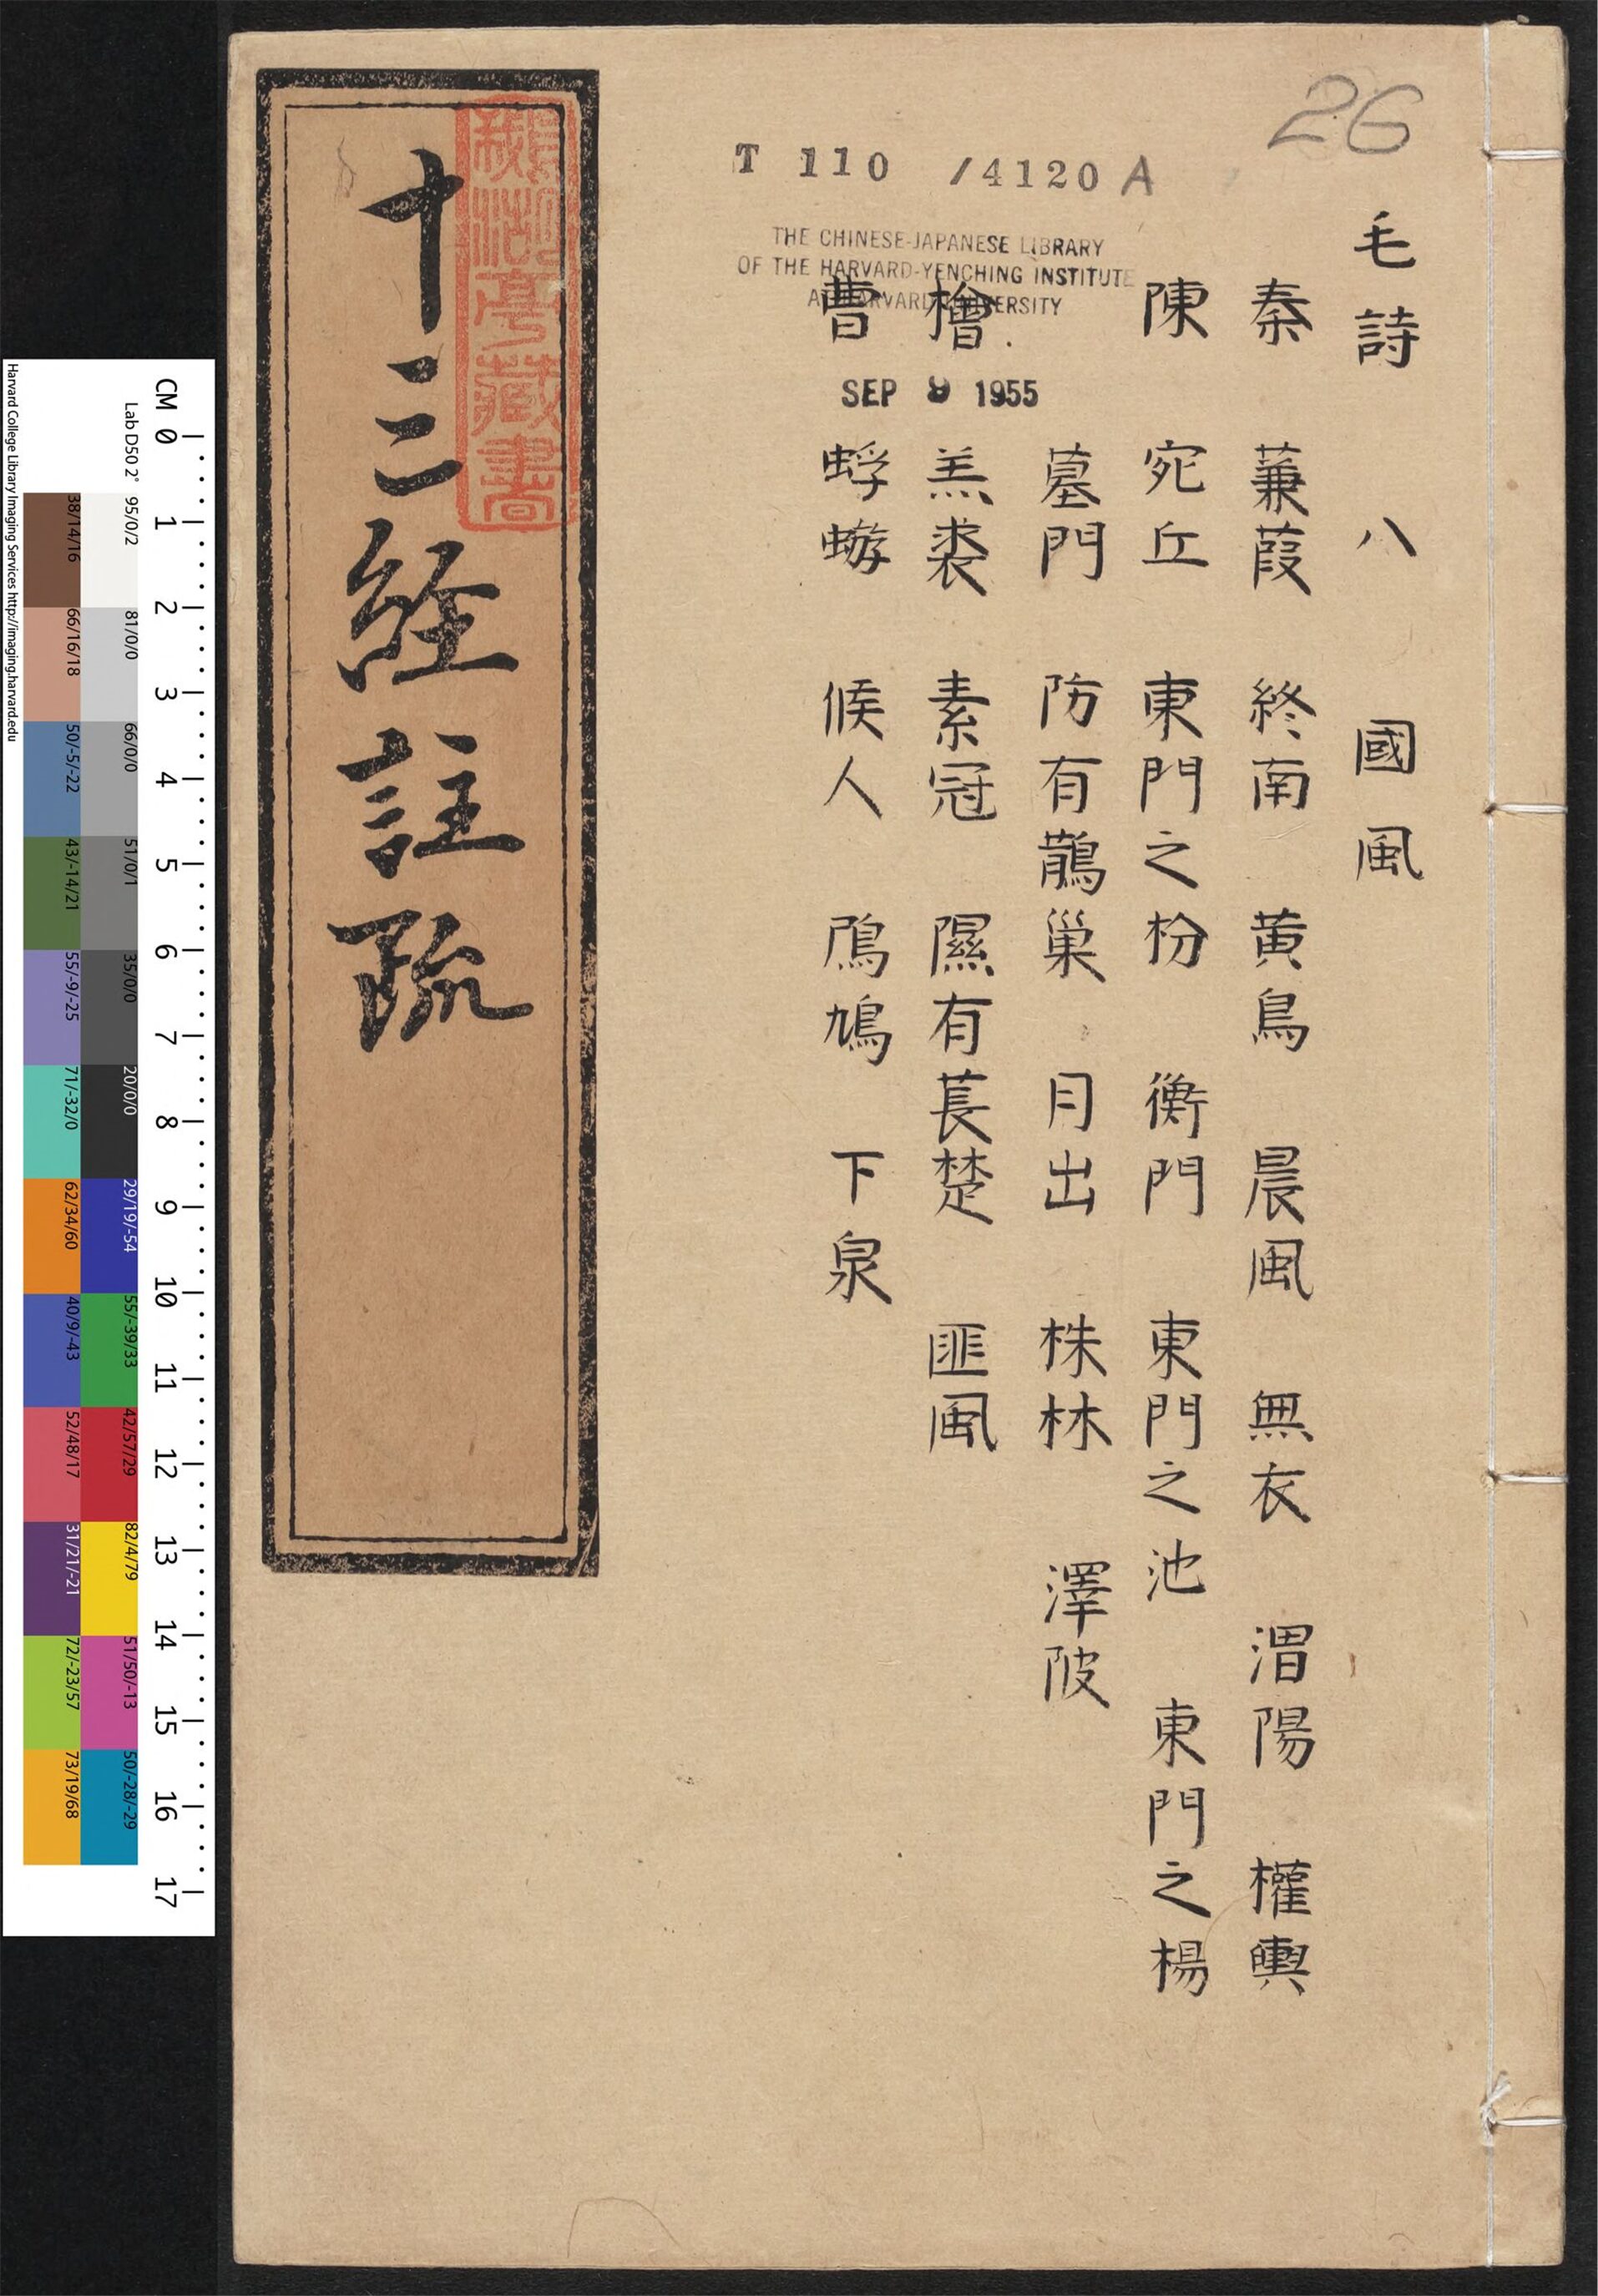 26
T 110 /4120 A
THE CHINESE-JAPANESE LIBRARY
OF THE HARVARD-YENCHING INSTITUTE
AT HARVARD UNIVERSITY
SEP 9 1955
毛詩 八 國風
秦 蒹葭 終南 黄鳥 晨風 無衣 渭陽 權輿
陳 宛丘 東門之枌 衡門 東門之池 東門之楊
墓門 防有鵲巢 月出 株林 澤陂
檜 羔裘 素冠 隰有萇楚 匪風
曹 蜉蝣 候人 鳲鳩 下泉
十三経註疏
亭藏書
CM 0 1 2 3 4 5 6 7 8 9 10 11 12 13 14 15 16 17
Lab D50 2° 95/0/2 81/0/0 66/0/0 51/0/1 35/0/0 20/0/0 29/19/-54 55/-39/33 42/57/29 82/4/79 51/50/-13 50/-28/-29
38/14/16 66/16/18 50/-5/-22 43/-14/21 55/-9/-25 71/-32/0 62/34/60 40/9/-43 52/48/17 31/21/-21 72/-23/57 73/19/68
Harvard College Library Imaging Services http://imaging.harvard.edu